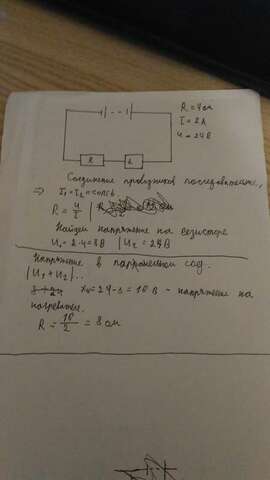 R = 4 Ом
I = 2 А
U = 24 В
R
Соединение проводников последовательно,
=> I₁ = I₂ = const.
R = U/I
Найдём напряжение на резисторе
U₁ = 2·4 = 8 В | U₂ = 24 В
Напряжение в соед.
|U₁ + U₂|...
= 24 - 8 = 16 В - напряжение на
нагревател.
R = 16/2 = 8 Ом